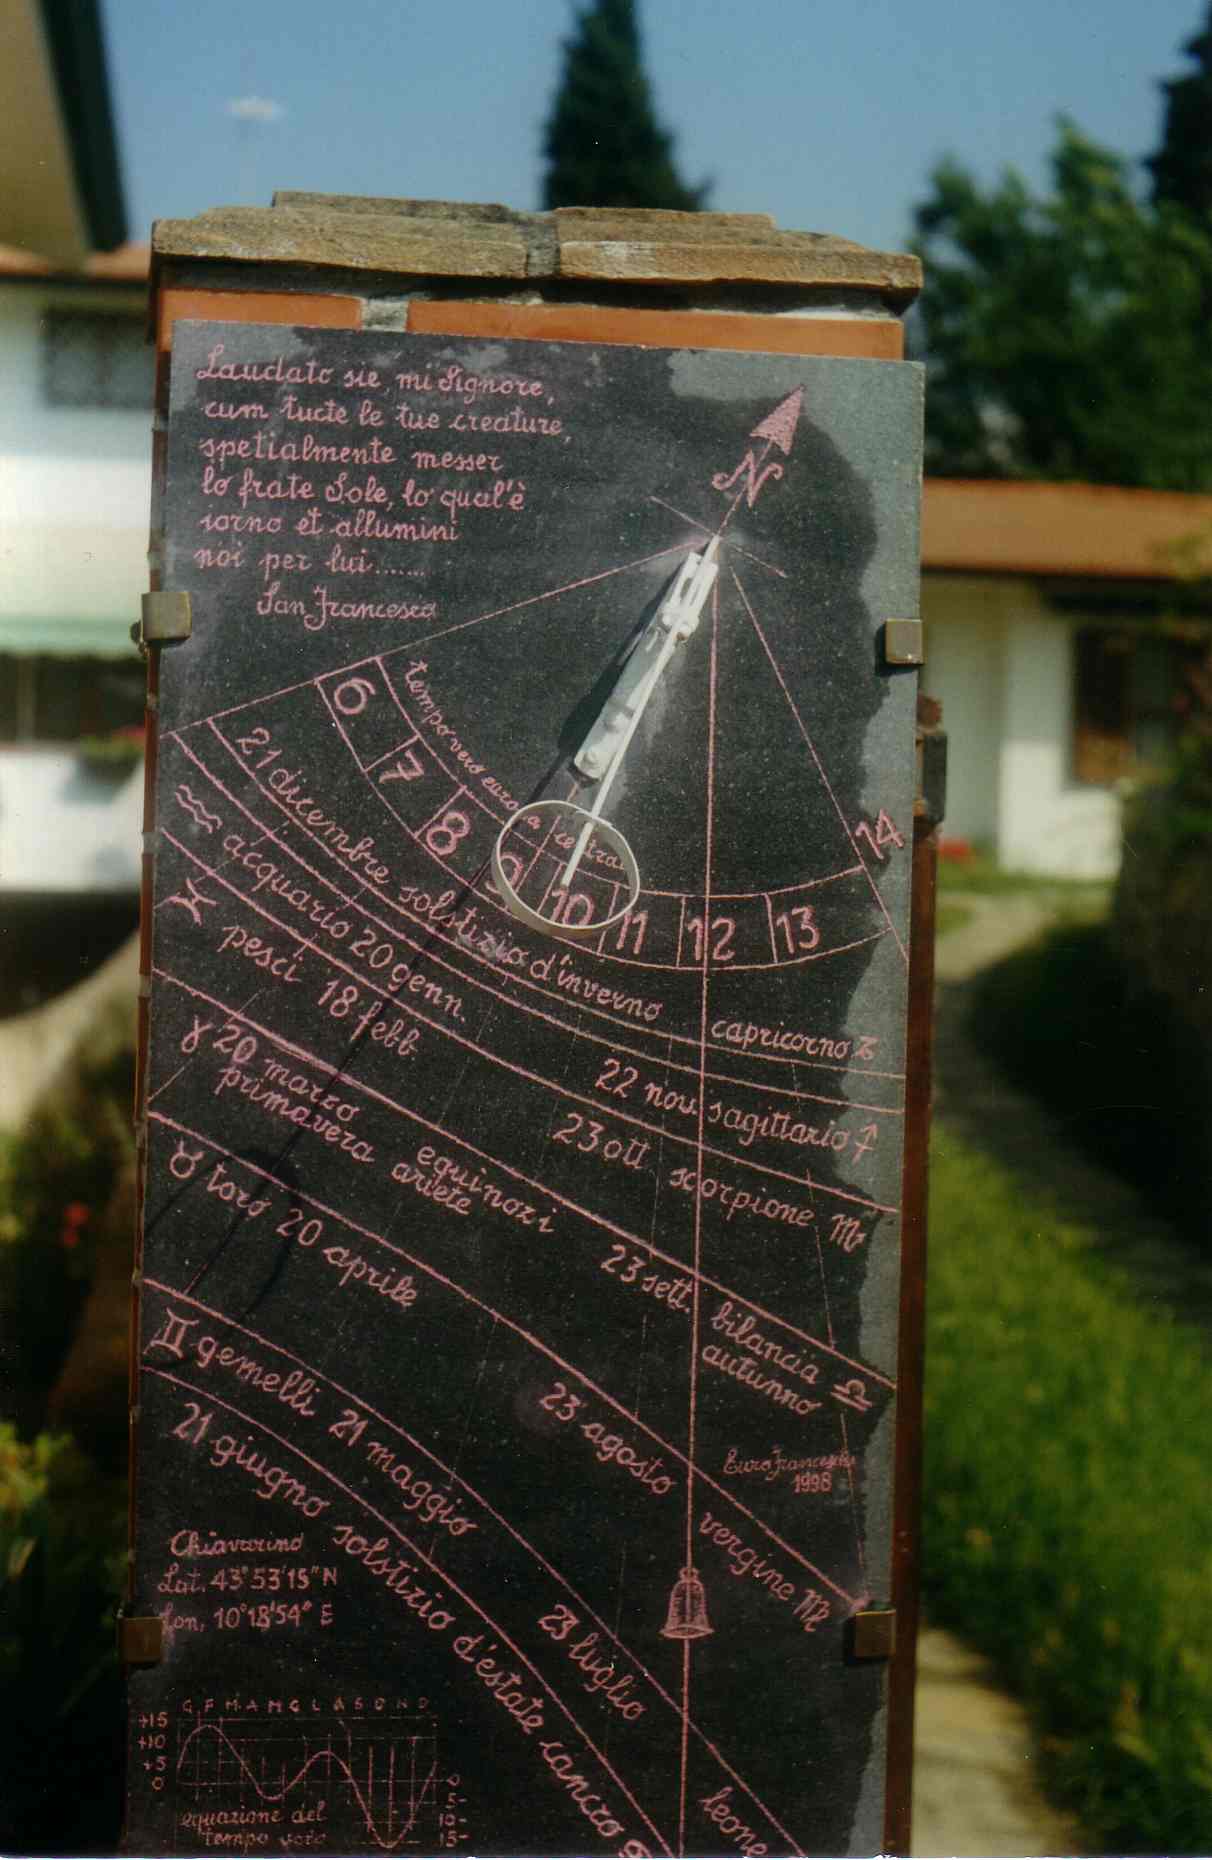 Laudato sie, mi Signore,
cum tucte le tue creature,
spetialmente messer
lo frate Sole, lo qual'è
iorno et allumini
noi per lui.......
San Francesco
N
tempo vero
6 7 8 9 10 11 12 13 14
21 dicembre solstizio d'inverno capricorno ♑
♒ acquario 20 genn. 22 nov. sagittario ♐
♓ pesci 18 febb. 23 ott. scorpione ♏
♈ 20 marzo equinozi 23 sett. bilancia ♎
primavera ariete autunno
♉ toro 20 aprile 23 agosto vergine ♍
♊ gemelli 21 maggio 23 luglio leone
21 giugno solstizio d'estate cancro ♋
1998
Lat. 43°53'15" N
Lon. 10°18'54" E
G F M A M G L A S O N D
+15
+10
+5
0
0
5-
10-
15-
equazione del
tempo vero